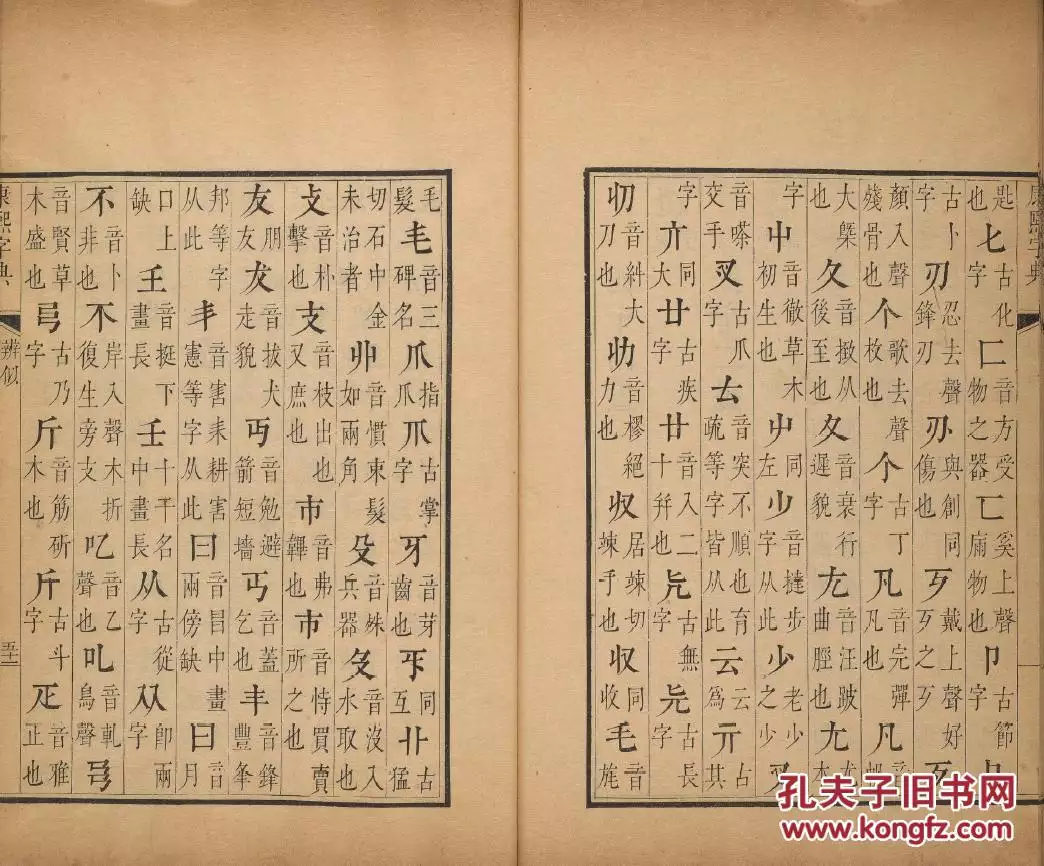 康熙字典
匙也 𠤎 古化字 匚 音方受物之器 匸 奚上聲物也 卩 古節 卪
古卜字 刃 忍去聲鋒刃 刅 與創同傷也 歹 戴上聲好歹之歹 歺
顏入聲殘骨也 个 歌去聲枚也 个 古丁字 凡 音完彈凡也 凡 音
大槩也 夂 音撴从後至也 夊 音衰行遲貌 尢 音汪跛曲脛也 尤 尤本
字 屮 音徹草木初生也 屮 同左 少 音撻步字从此 少 老少之少 叉
音嗏交手 叉 古爪字 𠫓 音突不順也育疏等字皆从此 云 音云爲 亓 古其
字 亣 同大 廿 古疾字 廿 音入二十幷也 旡 古無字 兂 古長字
㓛 音糾大刀也 㔓 音樛絕力也 収 居竦切竦手也 収 同收 毛 音旄
毛髮 毛 音三碑名 爪 指爪 爪 古掌字 牙 音芽齒也 㸦 同互 卝 古猛
切石中金未治者 丱 音慣束髮如兩角 殳 音殊兵器 𠬛 音沒入水取也
攴 音朴擊也 支 音枝出也又庶也 巿 音弗韠也 市 音恃買賣所之也
友 朋友 犮 音拔犬走貌 丏 音勉避箭短墻 丐 音蓋乞也 丰 音鋒豐夆
邦等字从此 丯 音害耒耕害憲等字从此 曰 音冒中畫兩傍缺 曰 月
口上缺 𡈼 音挺下畫長 壬 十干名中畫長 从 古從字 从 即兩字
不 音卜非也 不 岸入聲木折復生旁支 音乙聲也 音軋鳥聲
音賢草木盛也 弓 古乃字 斤 音筋斫木也 斤 古斗字 疋 音雅正也
康熙字典 辨似
孔夫子旧书网
www.kongfz.com